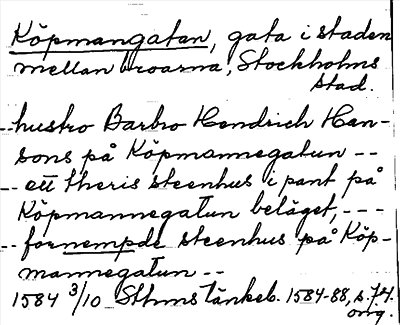 Köpmangatan, gata i staden
mellan broarna, Stockholms
stad.
--hustro Barbro Hendrich Han-
sons på Köpmannegatun --
-- ett theris steenhus i pant på
Köpmannegatun beläget, ---
-- fornempde steenhus på Köp-
mannegatun --
1584 3/10 Sthms tänkeb. 1584-88, s. 74.
orig.